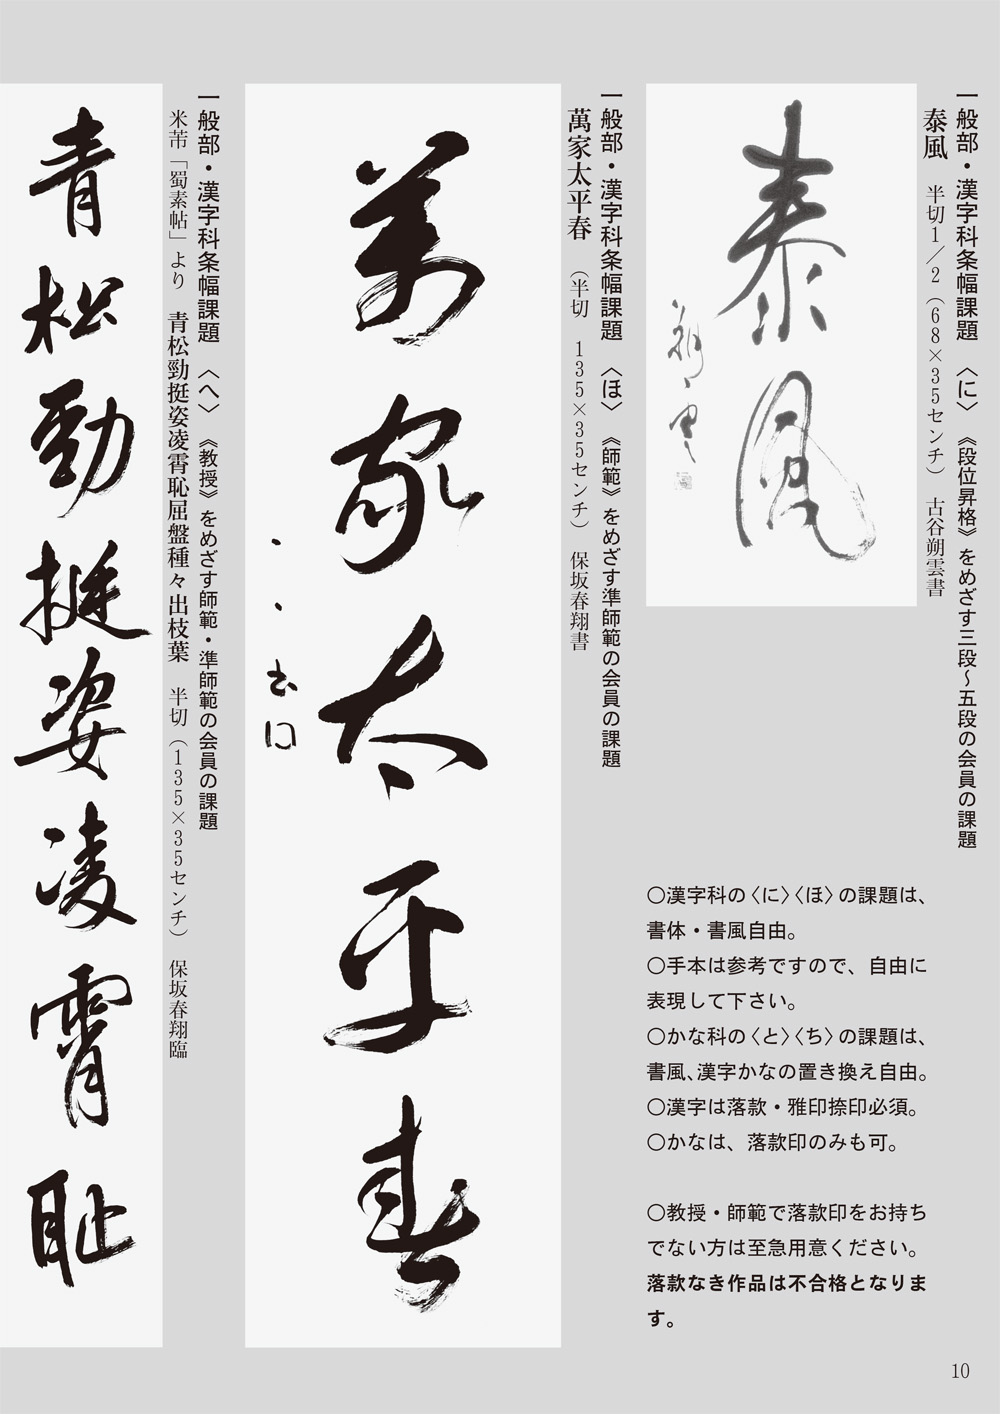 一般部・漢字科条幅課題 〈に〉 《段位昇格》をめざす三段～五段の会員の課題
泰風 半切1／2（68×35センチ） 古谷朔雲書
泰風
朔雲
一般部・漢字科条幅課題 〈ほ〉 《師範》をめざす準師範の会員の課題
萬家太平春 （半切 135×35センチ） 保坂春翔書
萬家太平春
・・書 印
一般部・漢字科条幅課題 〈へ〉 《教授》をめざす師範・準師範の会員の課題
米芾「蜀素帖」より 青松勁挺姿凌霄恥屈盤種々出枝葉 半切（135×35センチ） 保坂春翔臨
青松勁挺姿凌霄恥
〇漢字科の〈に〉〈ほ〉の課題は、
書体・書風自由。
〇手本は参考ですので、自由に
表現して下さい。
〇かな科の〈と〉〈ち〉の課題は、
書風、漢字かなの置き換え自由。
〇漢字は落款・雅印捺印必須。
〇かなは、落款印のみも可。
〇教授・師範で落款印をお持ち
でない方は至急用意ください。
落款なき作品は不合格となりま
す。
10